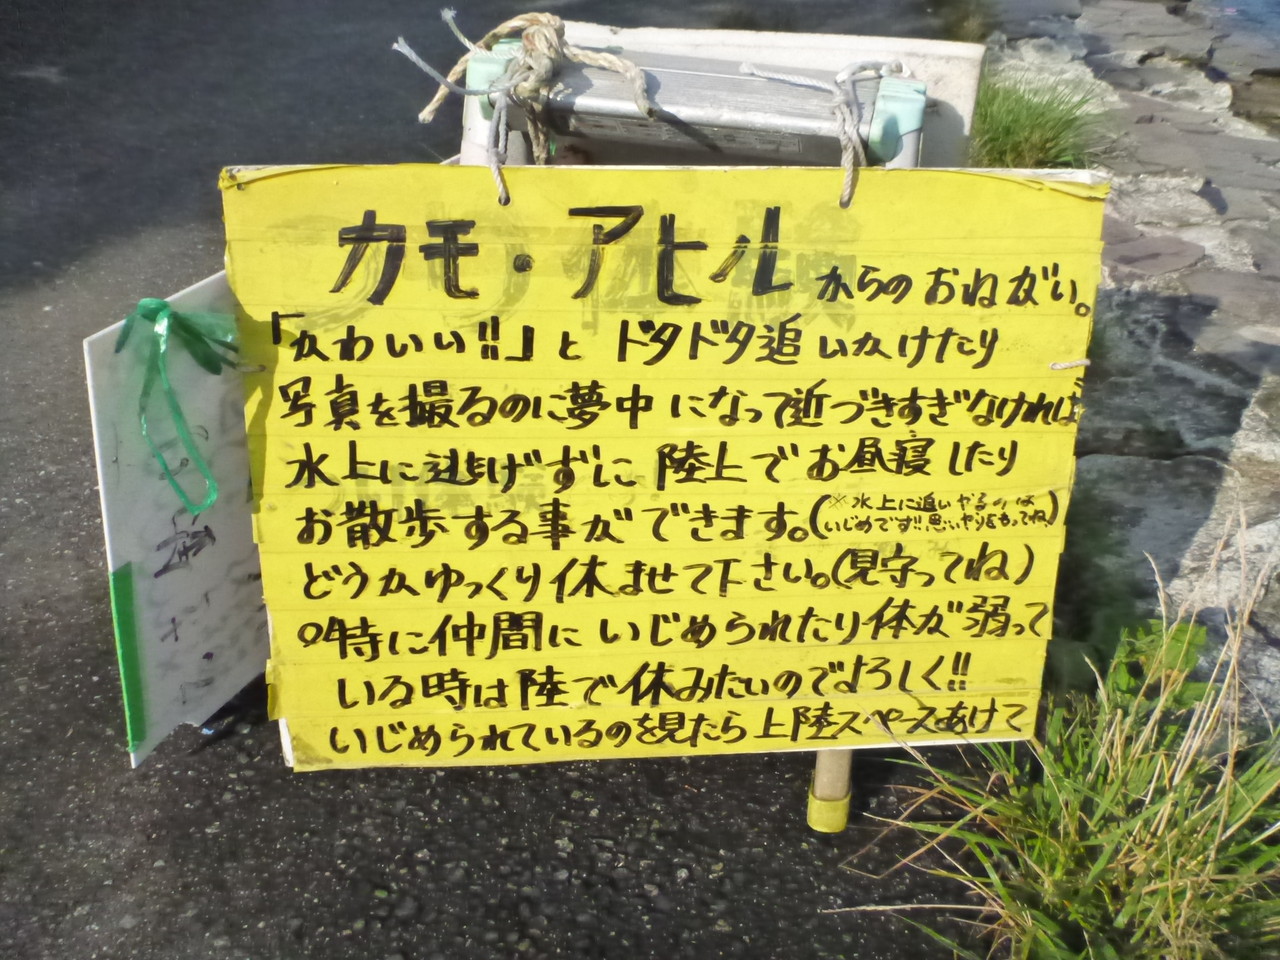 カモ・アヒルからのおねがい。
「かわいい!!」とドタドタ追いかけたり
写真を撮るのに夢中になって近づきすぎなければ
水上に逃げずに陸上でお昼寝したり
お散歩する事ができます。(※水上に追いやるのは
いじめです!!思いやりをもってね)
どうかゆっくり休ませて下さい。(見守ってね)
○特に仲間にいじめられたり体が弱って
いる時は陸で休みたいのでよろしく!!
いじめられているのを見たら上陸スペースあけて